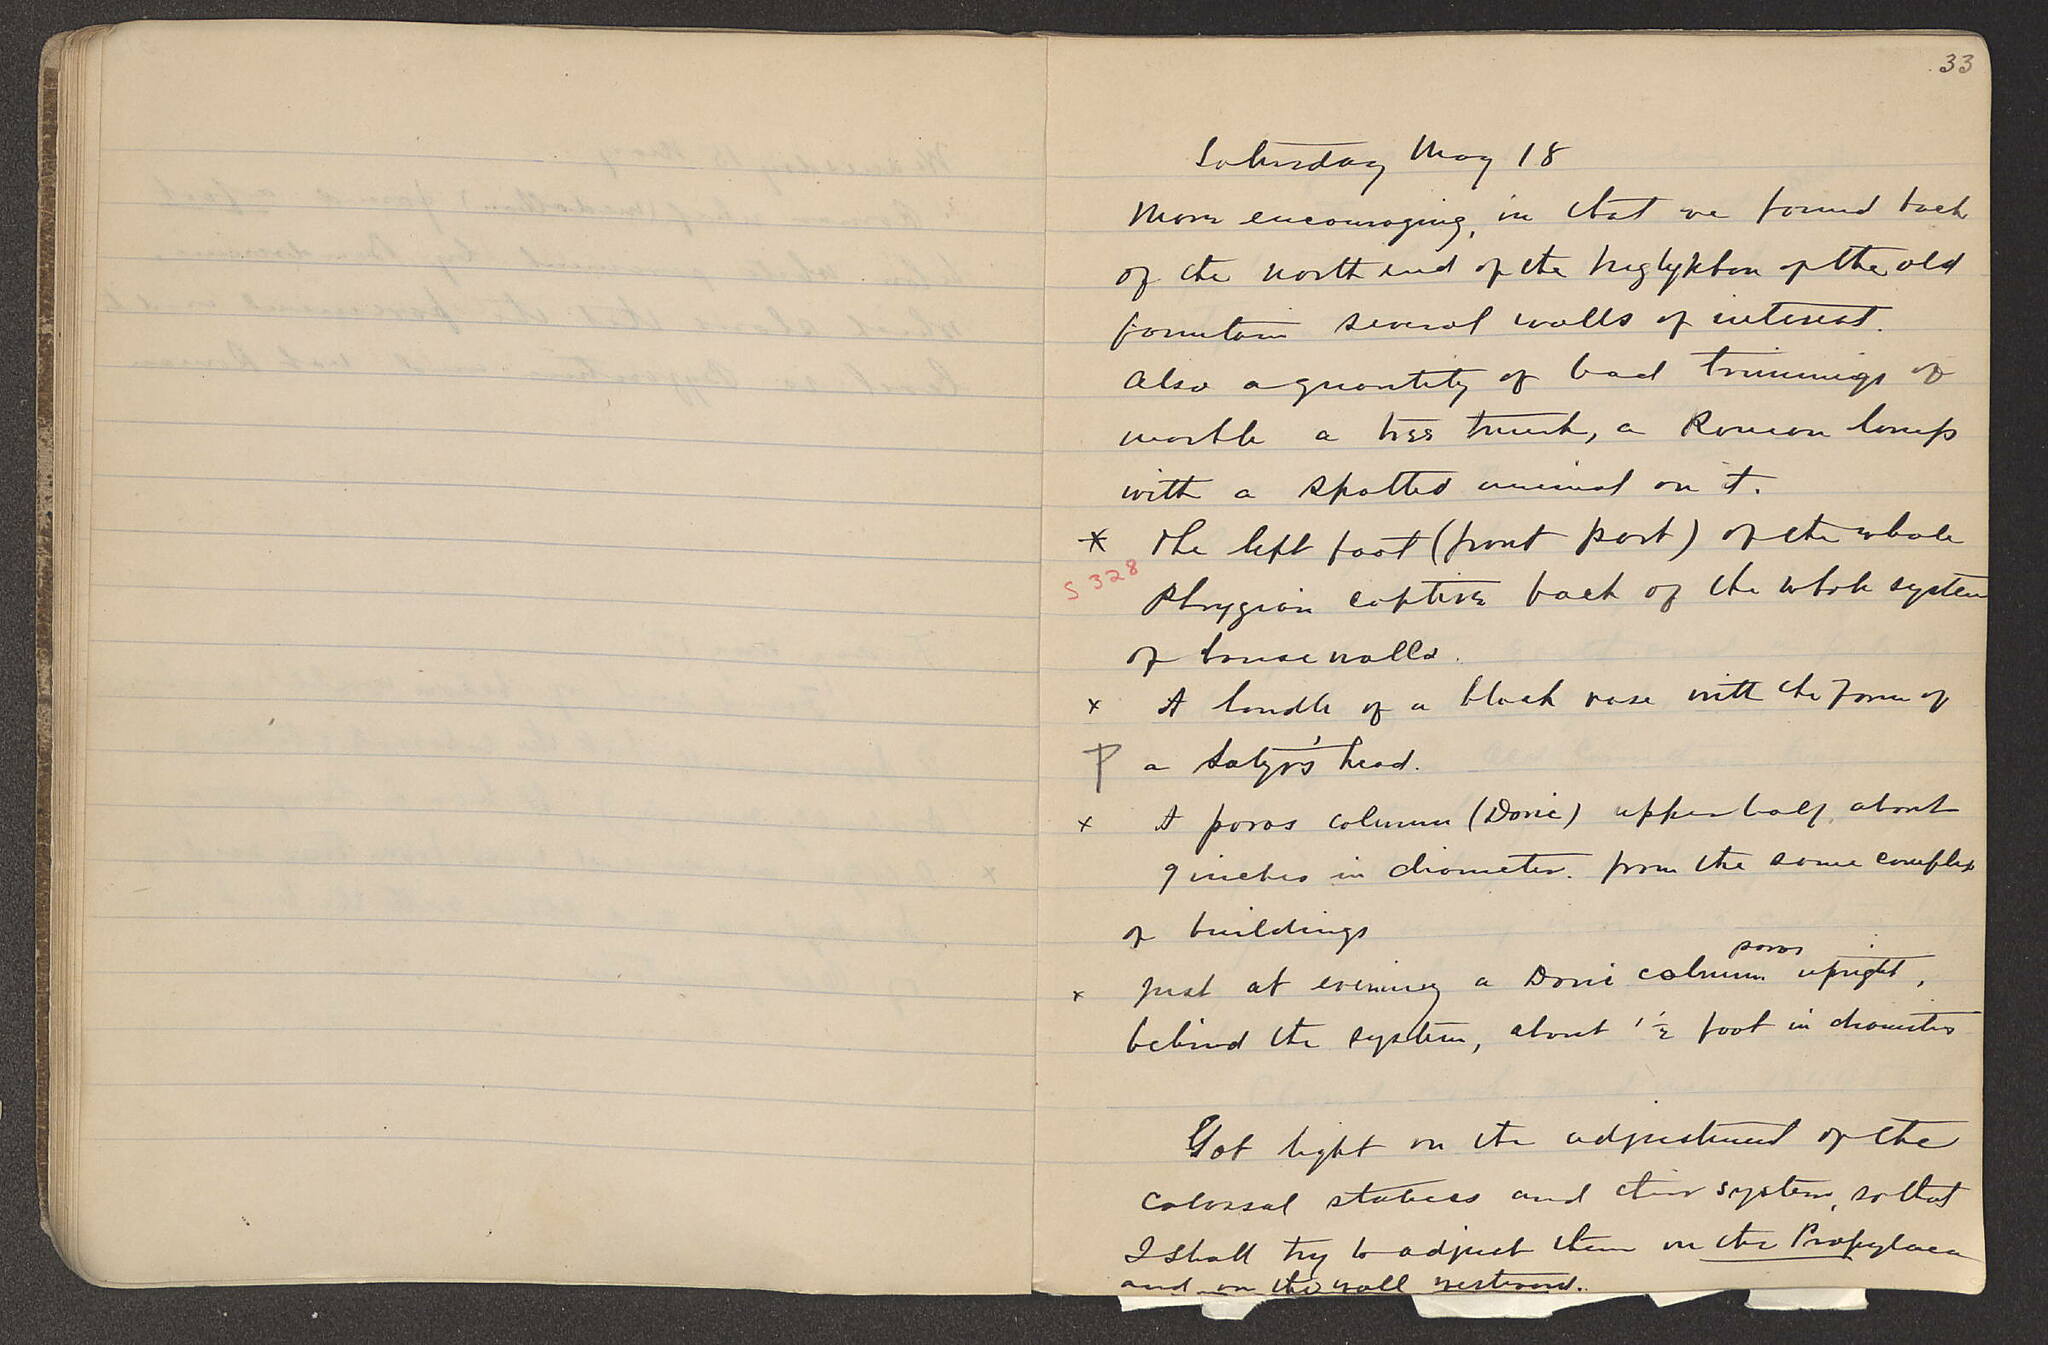 33
Saturday May 18
More encouraging, in that we found back
of the north end of the triglyphon of the old
fountain several walls of interest.
Also a quantity of bad trimmings of
marble a tree trunk, a Roman lamp
with a spotted animal on it.
x The left foot (front part) of the whole
S 328
Phrygian captive back of the whole system
of house walls.
x A handle of a black vase with the form of
P a Satyr's head.
x A poros column (Doric) upper half, about
9 inches in diameter. from the same complex
of buildings
poros
x Just at evening a Doric column upright,
behind the system, about 1½ foot in diameter
Got light on the adjustment of the
colossal statues and their system, so that
I shall try to adjust them on the Propylaea
and on the wall westward.